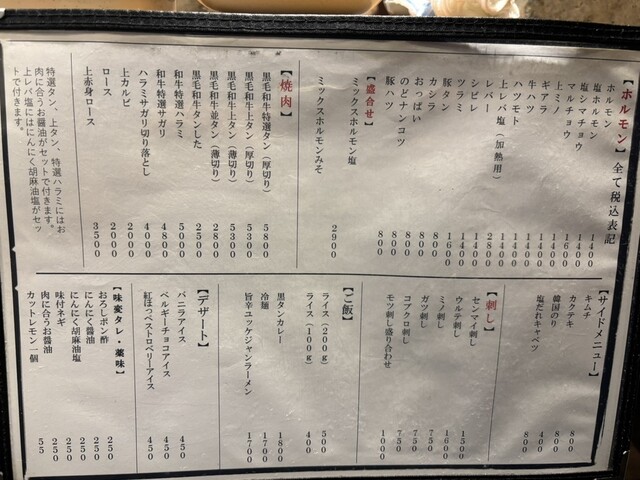 【ホルモン】全て税込表記
ホルモン 1400
塩ホルモン 1400
塩シマチョウ 1600
マルチョウ 1400
上ミノ 1400
ギアラ 1400
牛ハツ 1400
ハツモト 1400
上レバ塩（加熱用） 2800
レバー 1400
シビレ 1400
ツラミ 1600
豚タン 800
カシラ 800
おっぱい 800
のどナンコツ 800
豚ハツ 800
【盛合せ】
ミックスホルモン塩
ミックスホルモンみそ 2900
【焼肉】
黒毛和牛特選タン（厚切り） 5800
黒毛和牛上タン（厚切り） 5300
黒毛和牛上タン（薄切り） 5300
黒毛和牛並タン（薄切り） 2800
黒毛和牛タンした 2500
和牛特選ハラミ 5000
和牛特選サガリ 4800
ハラミサガリ切り落とし 4000
上カルビ 2000
ロース 2000
上赤身ロース 3500
特選タン、上タン、特選ハラミにはお
肉に合うお醤油がセットで付きます。
上レバ塩にはにんにく胡麻油塩がセッ
トで付きます。
【サイドメニュー】
キムチ 800
カクテキ 800
韓国のり 400
塩だれキャベツ 800
【刺し】
センマイ刺し 1500
ウルテ刺し 1600
ミノ刺し 1600
ガツ刺し 750
コブクロ刺し 750
モツ刺し盛り合わせ 1000
【ご飯】
ライス（200g） 500
ライス（100g） 400
黒タンカレー 1800
冷麺 1700
旨辛ユッケジャンラーメン 1700
【デザート】
バニラアイス 450
ベルギーチョコアイス 450
紅ほっぺストロベリーアイス 450
【味変タレ・薬味】
おろしポン酢 250
にんにく醤油 250
にんにく胡麻油塩 250
味付ネギ 250
肉に合うお醤油 250
カットレモン一個 55